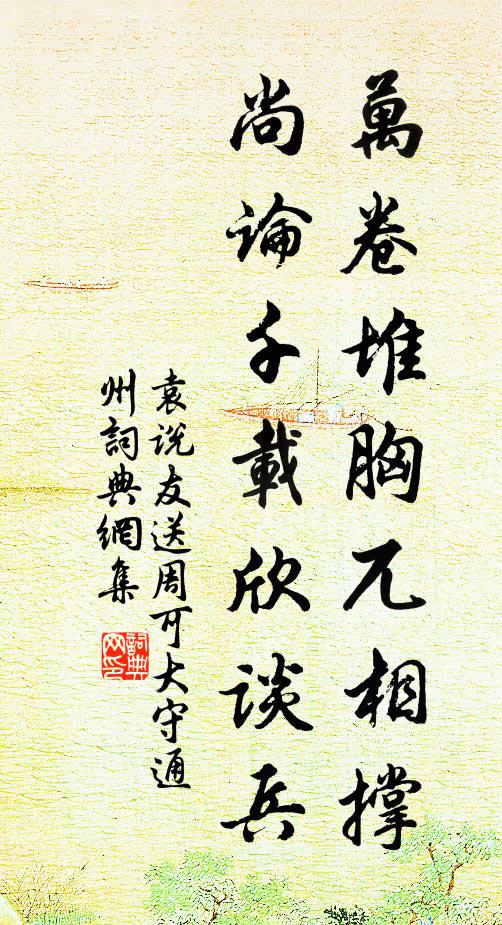 萬卷堆胸兀相撐
尚論千載欣談兵
袁說友送周可大守通
州詞典網集
詞典网印